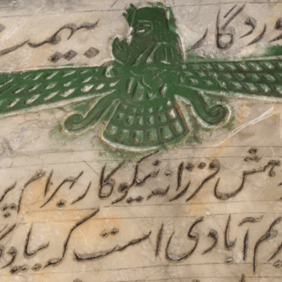 وردگار بیهمت
هش فرزانه نیکوکار بهرام پر
یم آبادی است که بیاد